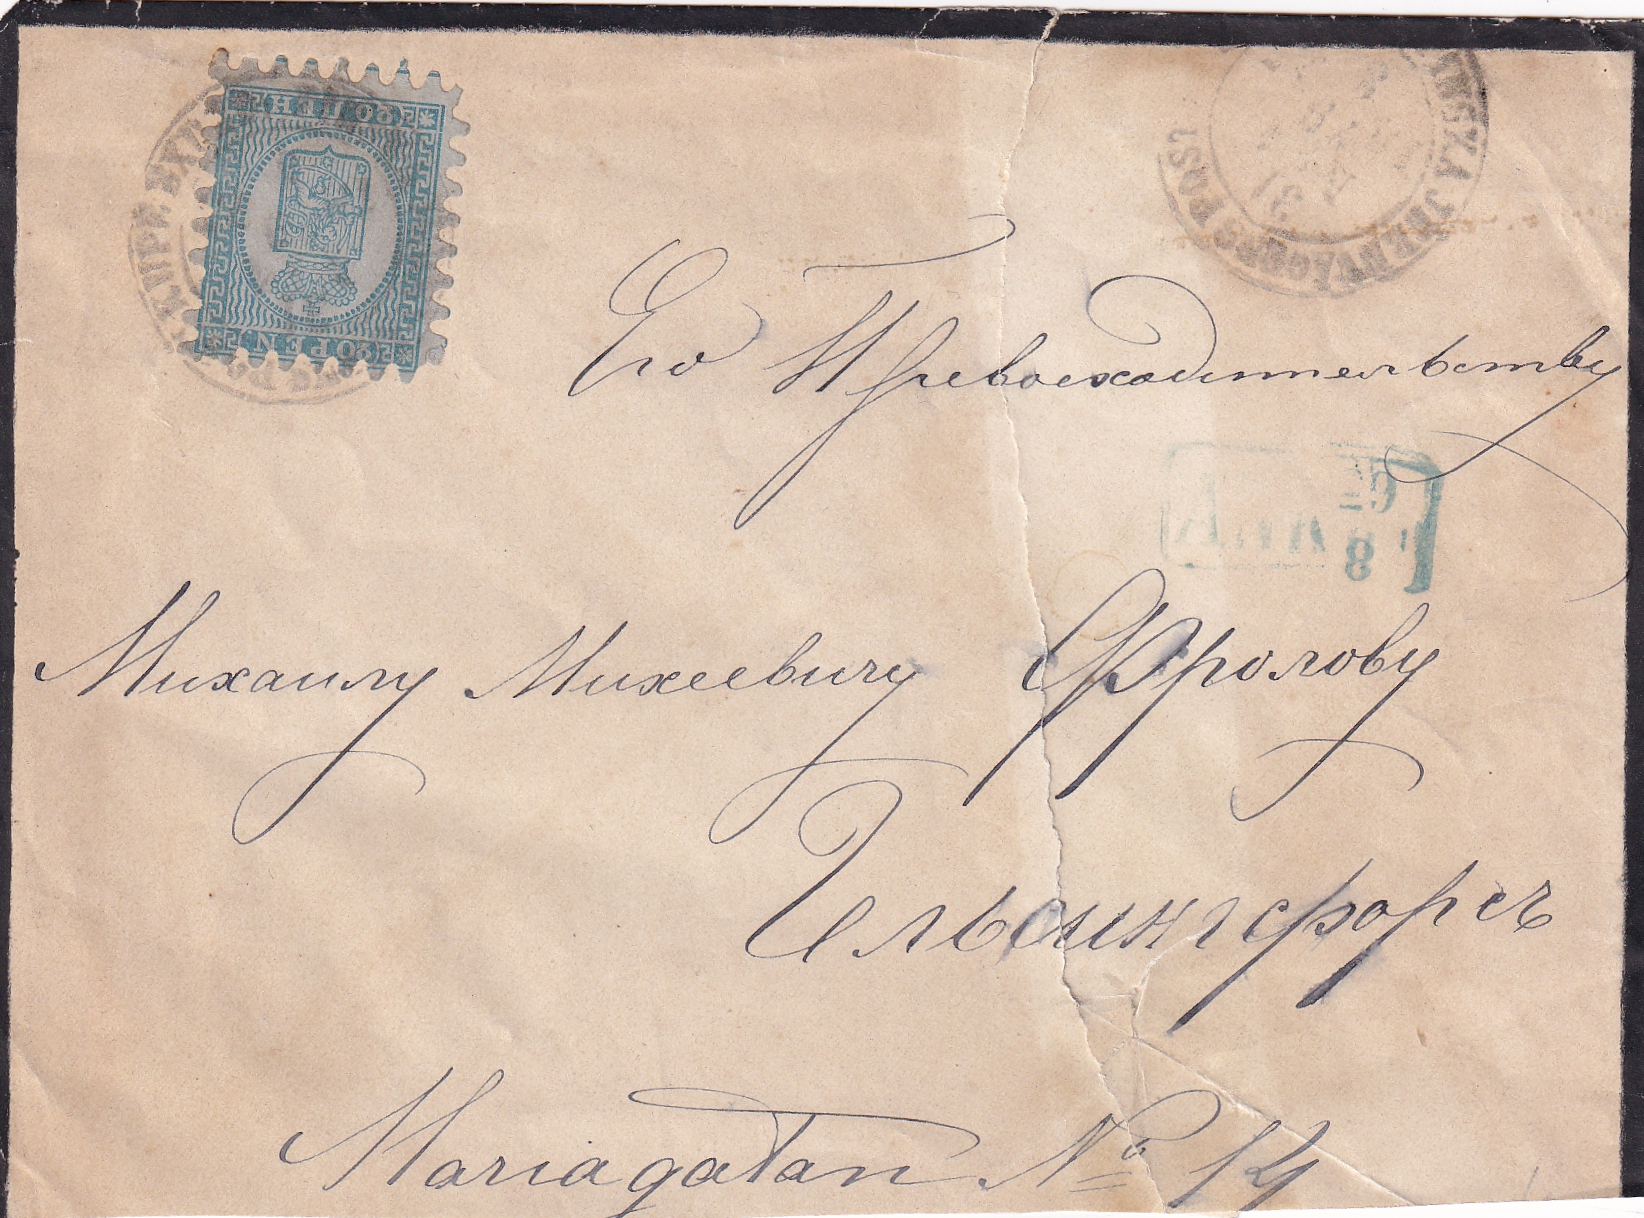 20 PEN
Его Превосходительству
Михаилу Михеевичу Фролову
Гельсингфорсъ
Mariagatan № 14